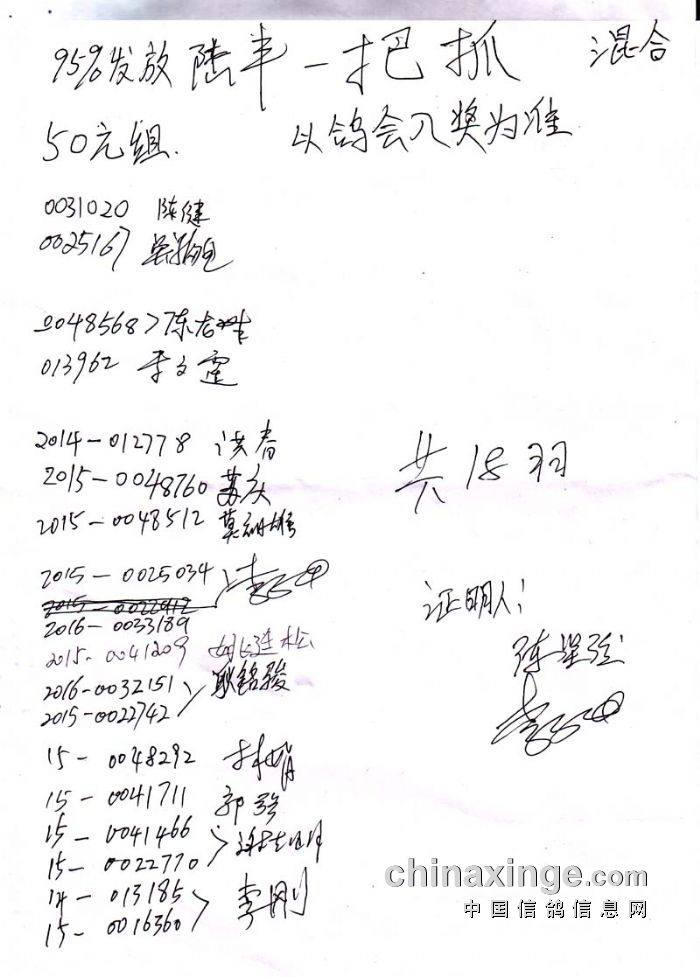 95%发放 陆丰 一把抓 混合
50元组 以鸽会入奖为准
0031020 陈健
0025167
0048568
013962 李文霆
2014-012778 洪春
2015-0048760 苏庆
2015-0048512
共18羽
2015-0025034
2015-0022912
2016-0033189
2015-0041209 姚连松
2016-0032151 耿铭骏
2015-0022742
证明人:
陈坚强
15-0048292
15-0041711 郭强
15-0041466
15-0022770
14-013185 李刚
15-0016360
chinaxinge.com
中国信鸽信息网